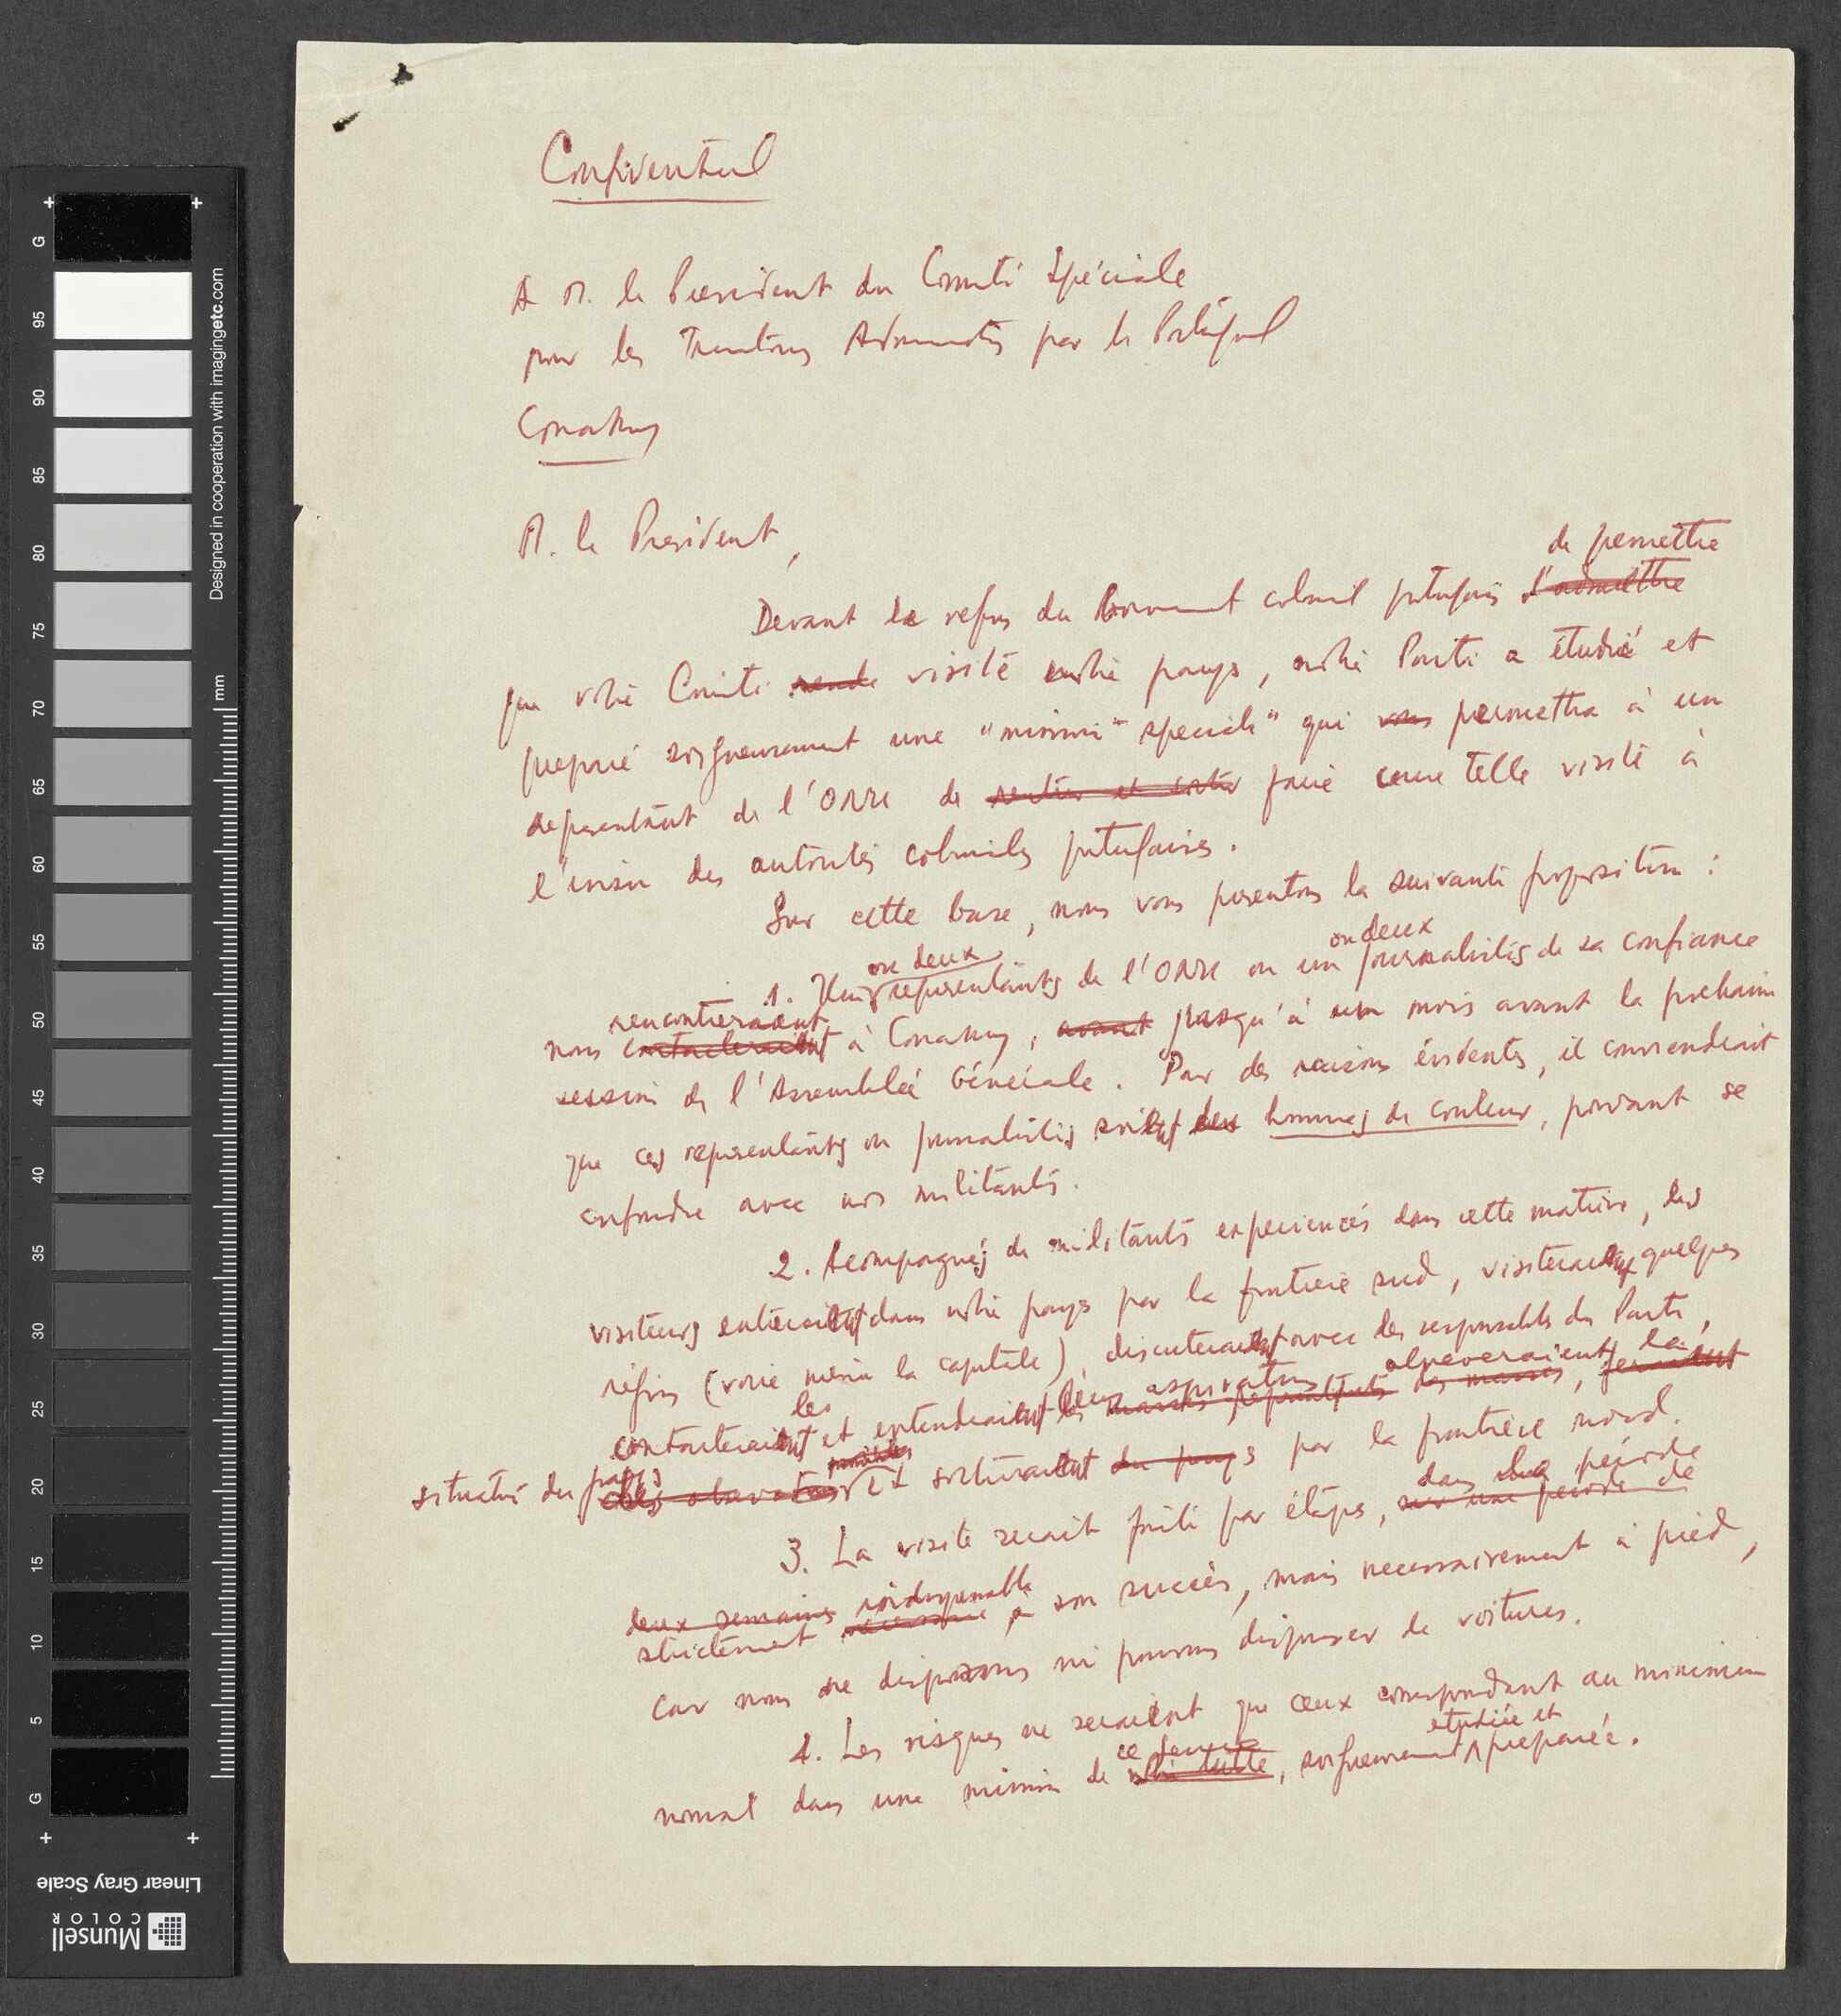 Confidentiel
A M. le President du Comité Spéciale
pour les Territoires Administrés par le Portugal
Conakry
M. le President,
de permettre
Devant le refus du Gouvernement colonial portugais d'admettre
que votre Comité rende visite notre pays, notre Parti a étudié et
preparé soigneusement une "mission speciale" qui vous permettra à un
representant de l'ONU de rentrer et sortir faire une telle visite à
l'insu des autorités coloniales portugaises.
Sur cette base, nous vous presentons la suivante proposition :
ou deux ou deux
1. Un representants de l'ONU ou un journalistes de sa confiance
rencontreraient
nous contacteraient à Conakry, avant jusqu'à un mois avant la prochaine
session de l'Assemblée Générale. Pour des raisons évidentes, il conviendrait
que ces representants ou journalistes soient des hommes de couleur, pouvant se
confondre avec nos militants.
2. Acompagnés de militants experiencés dans cette matière, les
visiteurs entreraient dans notre pays par la frontière sud, visiteraient quelques
régions (voire même la capitale), discuteraient avec les responsables du Parti,
les aspirations observeraient la
contacteraient et entendraient leurs des masses, feraient
situation du pays
Et sortiraient du pays par la frontière nord.
dans la période
3. La visite serait faite par étapes, sur une période de
deux semaines indispensable
strictement necessaire à son succès, mais necessairement à pied,
car nous ne disposons ni pouvons disposer de voitures.
4. Les risques ne seraient que ceux correspondant au minimum
ce genre étudiée et
normal dans une mission de notre lutte, soigneusement preparée.
Designed in cooperation with imagingetc.com
mm
G 95 90 85 80 75 70 65 60 55 50 45 40 35 30 25 20 15 10 5 G
Linear Gray Scale
Munsell
COLOR